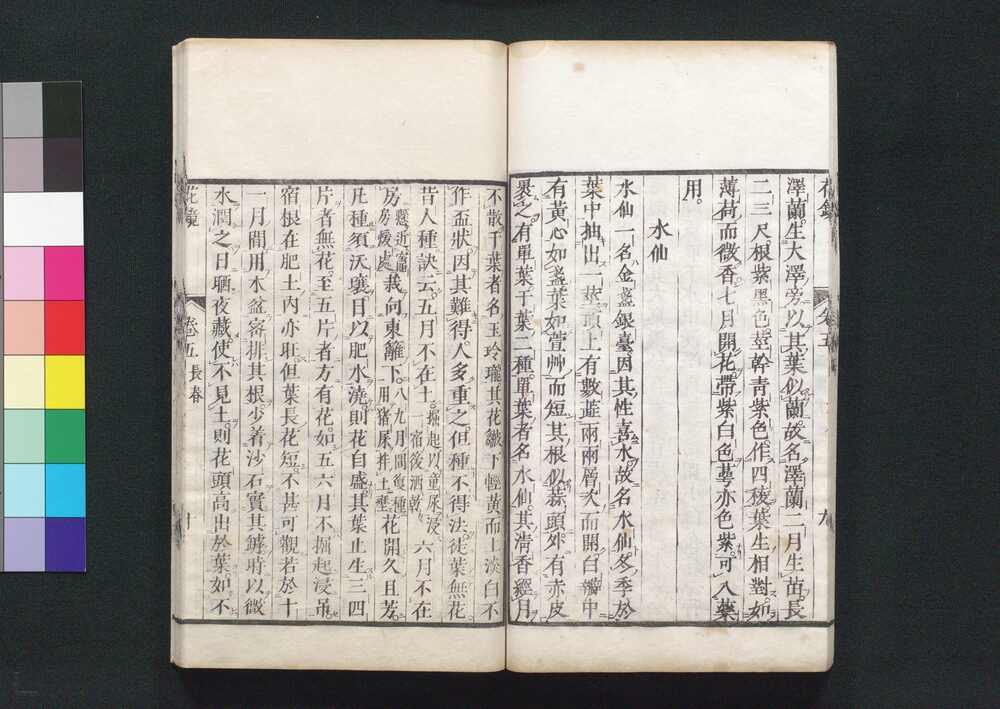 花鏡 卷五 九
澤蘭生大澤旁以其葉似蘭故名澤蘭二月生苗長
二三尺根紫黑色莖幹青紫色作四稜葉生相對如
薄荷而微香七月開花帶紫白色萼亦色紫可入藥
用
水仙
水仙一名金盞銀臺因其性喜水故名水仙冬季於
葉中抽出一莖頂上有數蕋兩兩層次而開白瓣中
有黃心如盞葉如萱艸而短其根似蒜頭外有赤皮
裹之有單葉千葉二種單葉者名水仙其清香經月
不散千葉者名玉玲瓏其花皺下輕黃而上淡白不
作盃狀因其難得人多重之但種不得法徒葉無花
昔人種訣云五月不在土掘起以童尿浸一宿後洒乾六月不在
房懸近竈房煖處栽向東籬下八九月間復種用猪尿拌土壅花開久且芳
凡種須沃壤日以肥水澆則花自盛其葉止生三四
片者無花至五片者方有花如五六月不掘起浸吊
宿根在肥土內亦旺但葉長花短不甚可觀若於十
一月間用木盆密排其根少着沙石實其罅時以微
水潤之日晒夜藏使不見土則花頭高出於葉如不
花鏡 卷五 長春 十